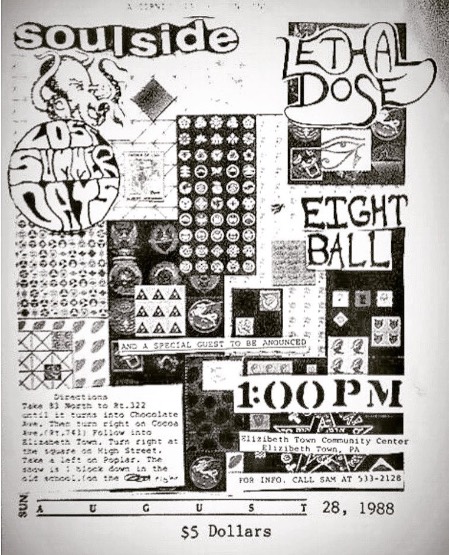 soulside
LETHAL
DOSE
DAYS
EIGHT
BALL
AND A SPECIAL GUEST TO BE ANOUNCED
1:00 PM
Directions
Take 83 North to Rt.322
until it turns into Chocolate
Ave. Then turn right on Cocoa
Ave.(Rt.743) Follow into
Elizabeth Town. Turn right at
the square on High Street.
Take a left on Poplar. The
show is 1 block down in the
old school.(on the right
Elizibeth Town Community Center
Elizibeth Town, PA
FOR INFO. CALL SAM AT 533-2128
SUN AUGUST 28, 1988
$5 Dollars